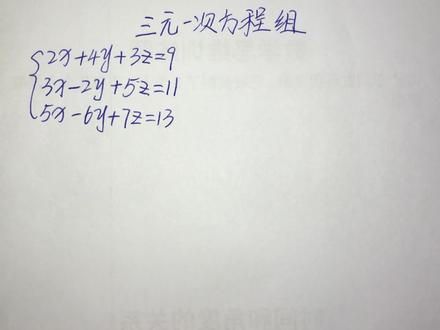 三元一次方程组
2x+4y+3z=9
3x-2y+5z=11
5x-6y+7z=13